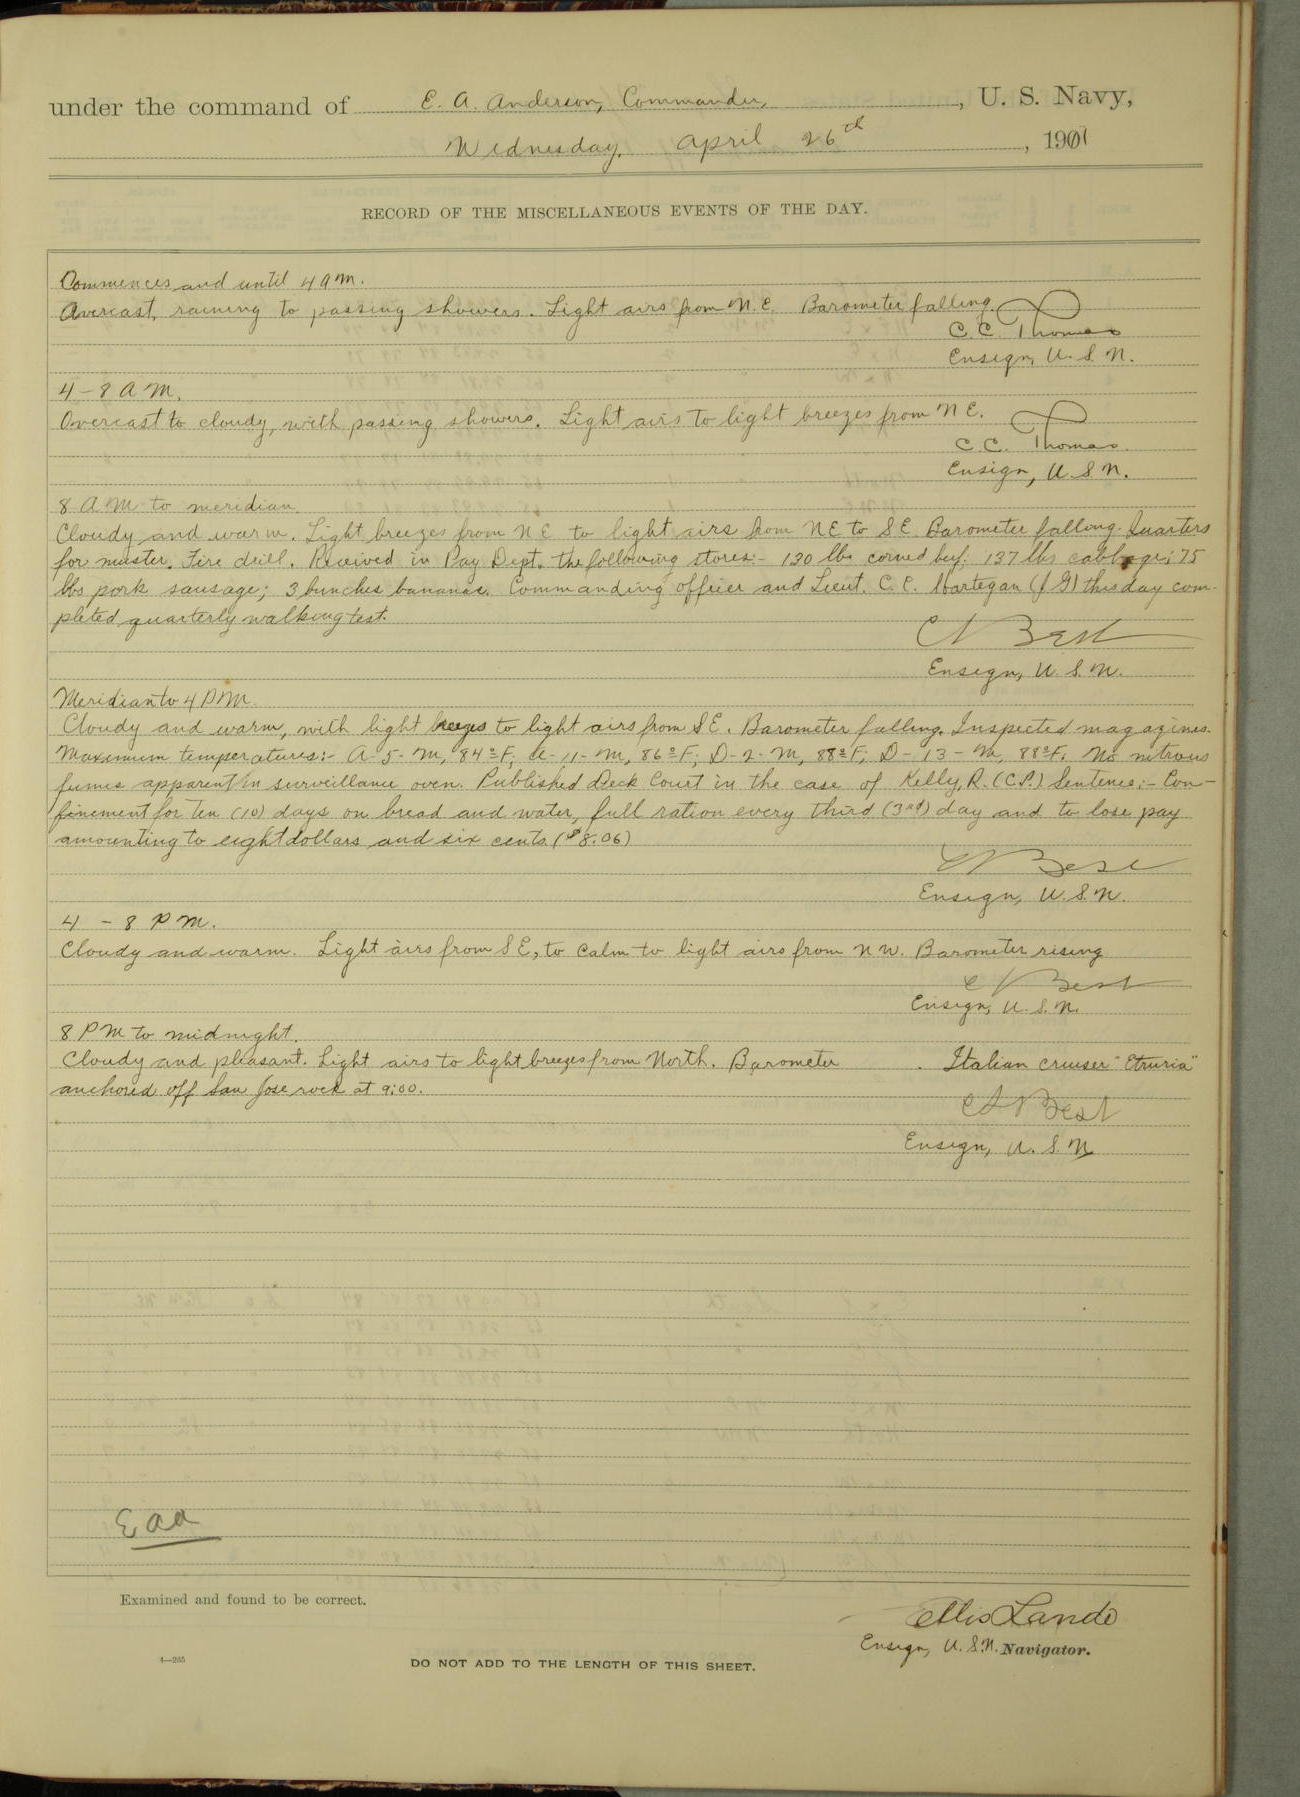 under the command of E. A. Anderson, Commander, , U. S. Navy,
Wednesday, April 26th , 1901
RECORD OF THE MISCELLANEOUS EVENTS OF THE DAY.
Commences and until 4 a m.
Overcast, raining to passing showers. Light airs from N. E. Barometer falling.
C. C. Thomas
Ensign, U. S. N.
4 - 8 A M.
Overcast to cloudy, with passing showers. Light airs to light breezes from N E.
C. C. Thomas
Ensign, U. S. N.
8 A M to meridian.
Cloudy and warm. Light breezes from N E to light airs from N E to S E. Barometer falling. Quarters
for muster. Fire drill. Received in Pay Dept. the following stores:- 130 lbs corned beef; 137 lbs cabbage; 75
lbs pork sausage; 3 bunches bananas. Commanding officer and Lieut. C. C. Hartegan (J G) this day com-
pleted quarterly walking test.
C N Best
Ensign, U. S. N.
Meridian to 4 P M.
Cloudy and warm, with light breezes to light airs from S E. Barometer falling. Inspected magazines.
Maximum temperatures:- A-5-M, 84° F; A-11-M, 86° F; D-2-M, 88° F; D-13-M, 88° F. No nitrous
fumes apparent in surveillance oven. Published Deck Court in the case of Kelly, R. (C.P.) Sentence:- Con-
finement for ten (10) days on bread and water, full ration every third (3rd) day and to lose pay
amounting to eight dollars and six cents ($8.06)
Best
Ensign, U. S. N.
4 - 8 P M.
Cloudy and warm. Light airs from S E, to calm to light airs from N W. Barometer rising
Best
Ensign, U. S. N.
8 P M to midnight.
Cloudy and pleasant. Light airs to light breezes from North. Barometer . Italian cruiser "Etruria"
anchored off San Jose rock at 9:00.
Best
Ensign, U. S. N
E a a
Examined and found to be correct.
Ellis Lando
Ensign, U. S. N. Navigator.
4—265
DO NOT ADD TO THE LENGTH OF THIS SHEET.